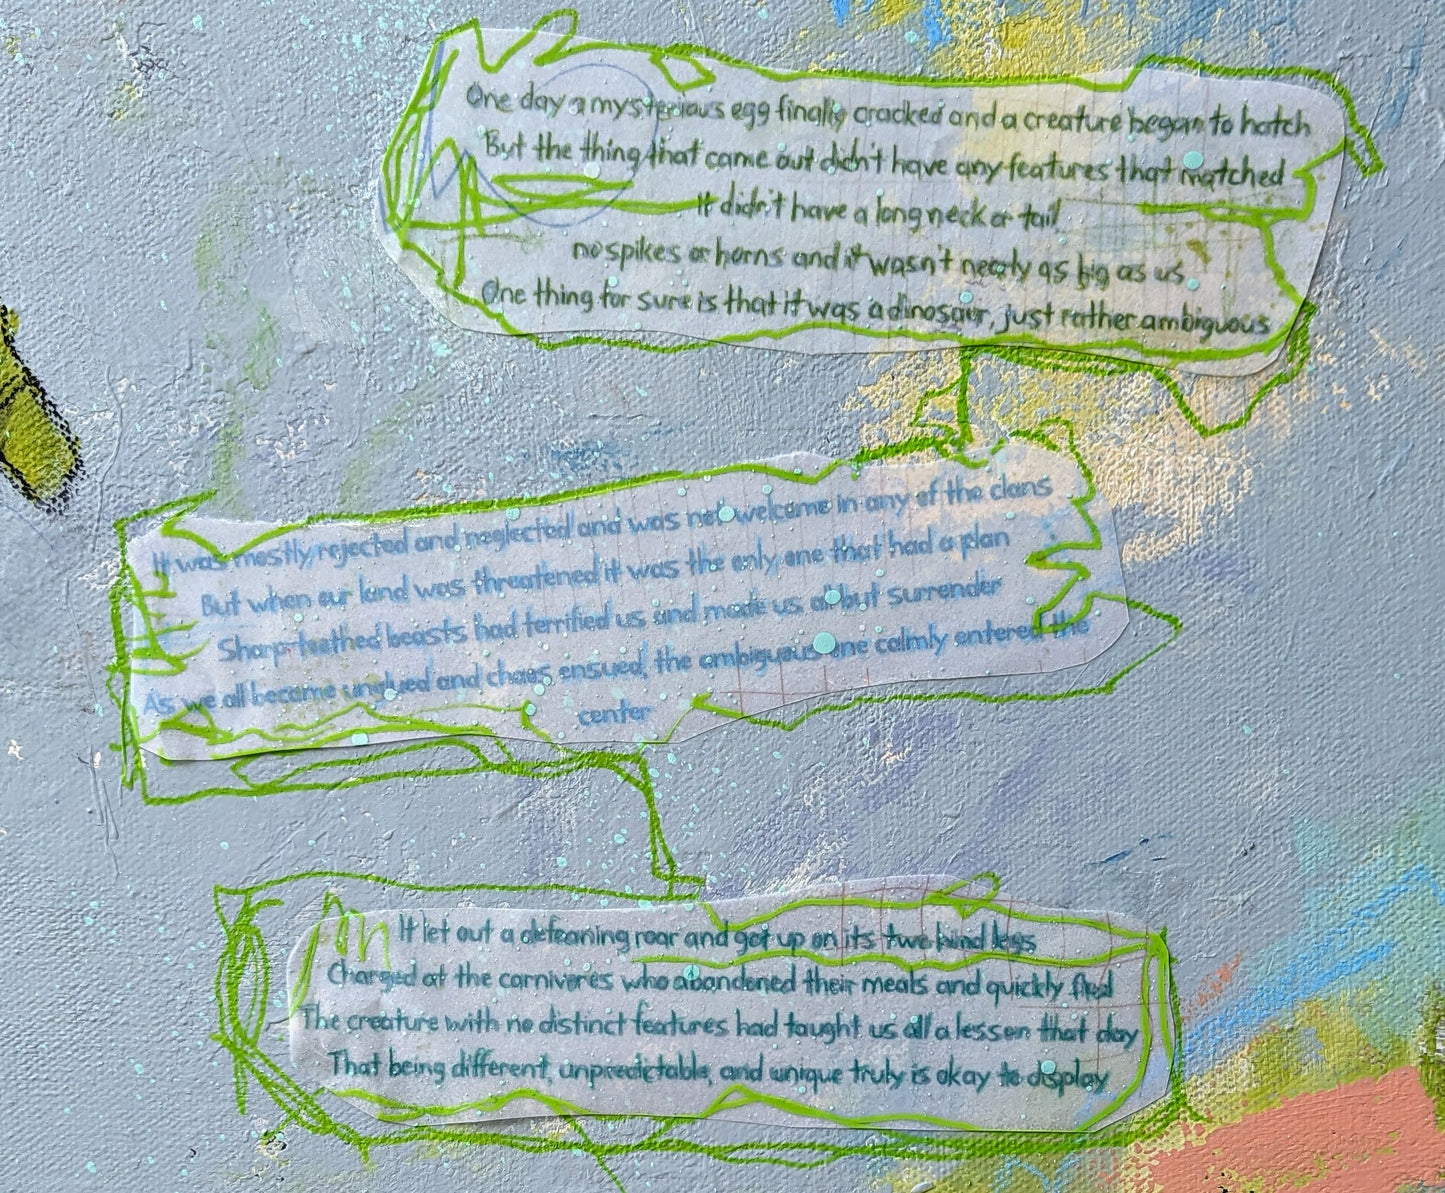 One day a mysterious egg finally cracked and a creature began to hatch
But the thing that came out didn't have any features that matched
It didn't have a long neck or tail
no spikes or horns and it wasn't nearly as big as us
One thing for sure is that it was a dinosaur, just rather ambiguous
It was mostly rejected and neglected and was not welcome in any of the clans
But when our land was threatened it was the only one that had a plan
Sharp-teathed beasts had terrified us and made us all but surrender
As we all became unglued and chaos ensued, the ambiguous one calmly entered the
center
It let out a defeaning roar and got up on its two hind legs
Charged at the carnivores who abandoned their meals and quickly fled
The creature with no distinct features had taught us all a lesson that day
That being different, unpredictable, and unique truly is okay to display